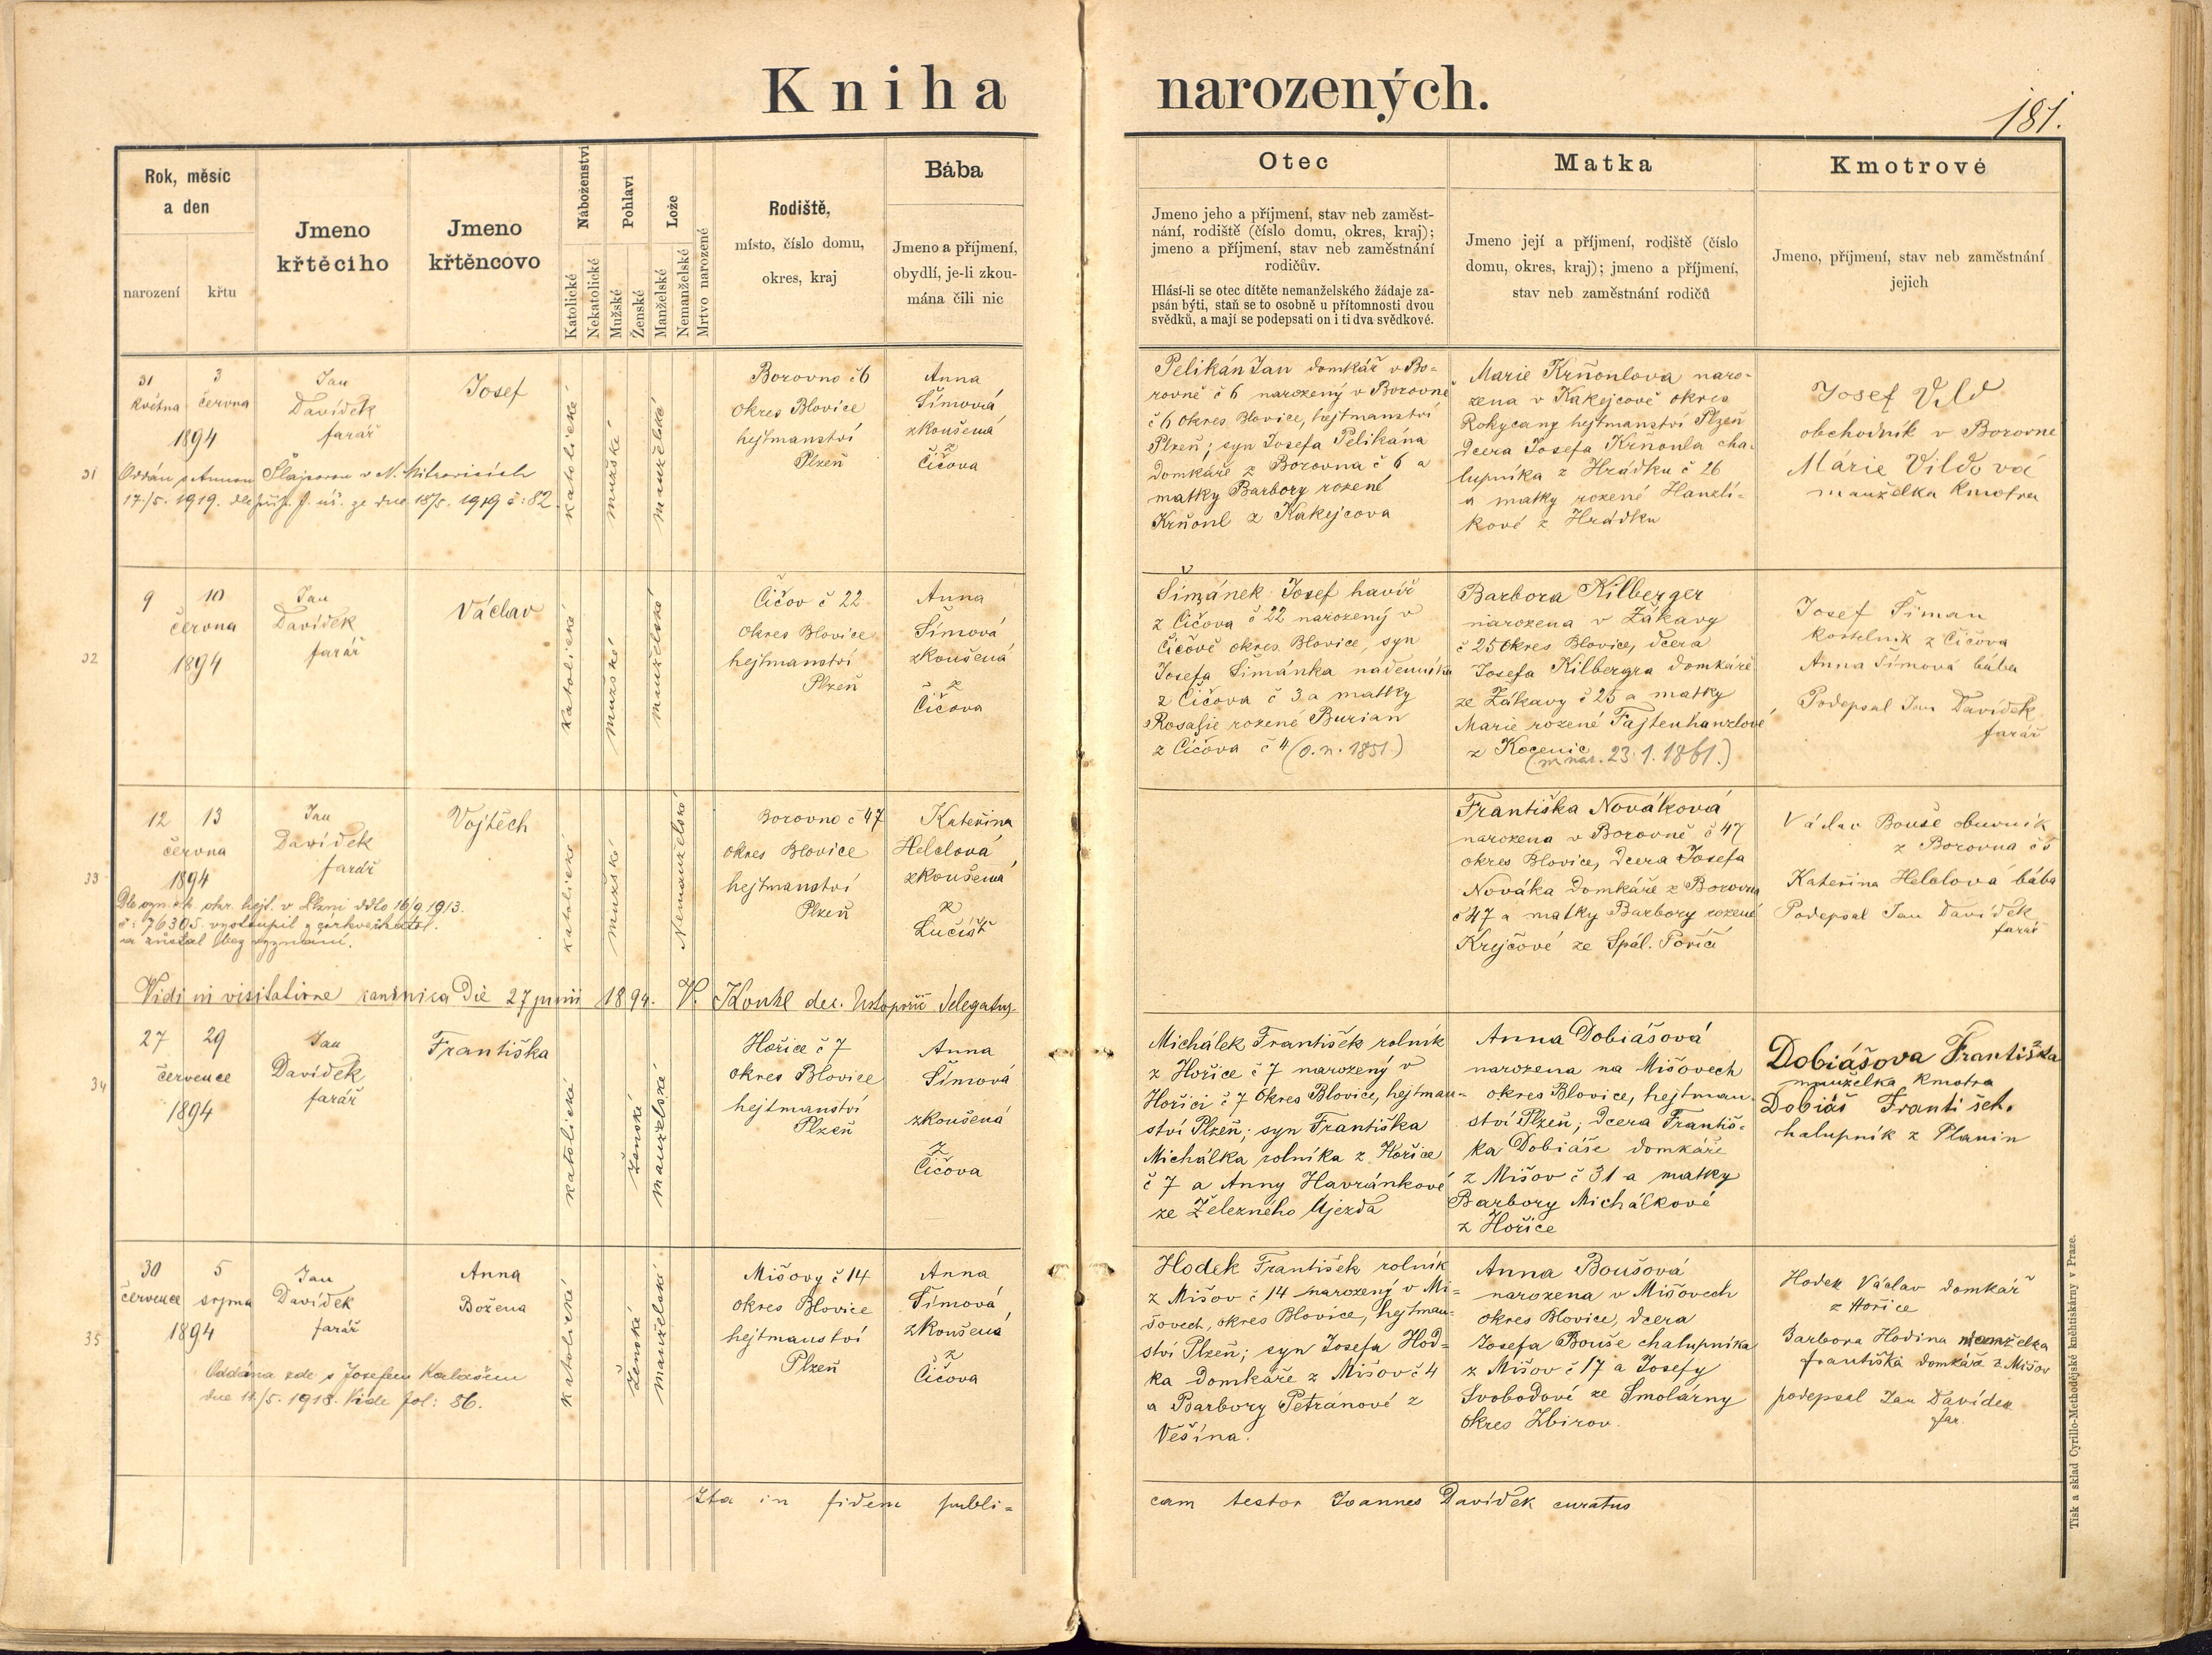 Kniha narozených.
181.
Rok, měsíc
a den
narození
křtu
Jmeno
křtěcího
Jmeno
křtěncovo
Náboženství
Katolické
Nekatolické
Pohlaví
Mužské
Ženské
Lože
Manželské
Nemanželské
Mrtvo narozené
Rodiště,
místo, číslo domu,
okres, kraj
Bába
Jmeno a příjmení,
obydlí, je-li zkou-
mána čili nic
Otec
Jmeno jeho a příjmení, stav neb zaměst-
nání, rodiště (číslo domu, okres, kraj);
jmeno a příjmení, stav neb zaměstnání
rodičův.
Hlásí-li se otec dítěte nemanželského žádaje za-
psán býti, staň se to osobně u přítomnosti dvou
svědků, a mají se podepsati on i ti dva svědkové.
Matka
Jmeno její a příjmení, rodiště (číslo
domu, okres, kraj); jmeno a příjmení,
stav neb zaměstnání rodičů
Kmotrové
Jmeno, příjmení, stav neb zaměstnání
jejich
31
31
května
3
června
1894
Jan
Davídek
farář
Josef
Oddán s Annou Šlajsovou v N. Mitrovicích
17./5. 1919. dle ze dne 18/5. 1919 č: 82.
katolické
mužské
manželské
Borovno č 6
okres Blovice
hejtmanství
Plzeň
Anna
Šímová
zkoušená
z
Čičova
Pelikán Jan domkář v Bo-
rovně č 6 narozený v Borovně
č 6 okres Blovice, hejtmanství
Plzeň; syn Josefa Pelikána
domkáře z Borovna č 6 a
matky Barbory rozené
Krňoul z Kakejcova
Marie Krňoulova naro-
zena v Kakejcově okres
Rokycany hejtmanství Plzeň
dcera Josefa Krňoula cha-
lupníka z Hrádku č 26
a matky rozené Hanzlí-
kové z Hrádku
Josef Vild
obchodník v Borovne
Márie Vildová
manželka kmotra
32
9
10
června
1894
Jan
Davídek
farář
Václav
katolické
mužské
manželské
Čičov č 22
okres Blovice
hejtmanství
Plzeň
Anna
Šímová
zkoušená
z
Čičova
Šimánek Josef havíř
z Čičova č 22 narozený v
Čičově okres Blovice, syn
Josefa Šimánka nádenníka
z Čičova č 3 a matky
Rosalie rozené Burian
z Čičova č 4 (o. n. 1851.)
Barbora Kilberger
narozena v Žákavy
č 25 okres Blovice, dcera
Josefa Kilbergra domkáře
ze Žákavy č 25 a matky
Marie rozené Fajtenhanzlové
z Kocenic
(m nar. 23. 1. 1861.)
Josef Šíman
kostelník z Čičova
Anna Šímová bába
Podepsal Jan Davídek
farář
33
12
13
června
1894
Jan
Davídek
farář
Vojtěch
Dle ozn. okr. hejt. v Plzni ddto 16/9. 1913.
č: 76305. vystoupil z církve katol.
a zůstal bez vyznání.
katolické
mužské
Nemanželské
Borovno č 47
okres Blovice
hejtmanství
Plzeň
Kateřina
Helclová
zkoušená
z
Lučišť
Františka Nováková
narozena v Borovně č 47
okres Blovice, dcera Josefa
Nováka domkáře z Borovna
č 47 a matky Barbory rozené
Krejčové ze Spál. Poříčí
Václav Bouše obuvník
z Borovna č 5
Kateřina Helclová bába
Podepsal Jan Davídek
farář
Vidi in visitatione canonica die 27 junii 1894. V. Kouhl dec. delegatus
34
27
29
července
1894
Jan
Davídek
farář
Františka
katolické
ženské
manželské
Hořice č 7
okres Blovice
hejtmanství
Plzeň
Anna
Šímová
zkoušená
z
Čičova
Michálek František rolník
z Hořice č 7 narozený v
Hořici č 7 okres Blovice, hejtman-
ství Plzeň; syn Františka
Michálka rolníka z Hořice
č 7 a Anny Havránkové
ze Železného Újezda
Anna Dobiášová
narozena na Mišovech
okres Blovice, hejtman-
ství Plzeň; dcera Františ-
ka Dobiáše domkáře
z Mišov č 31 a matky
Barbory Michálkové
z Hořice
Dobiášova Františka
manželka kmotra
Dobiáš František.
halupník z Planin
35
30
července
5
srpna
1894
Jan
Davídek
farář
Anna
Božena
Oddána zde s Josefem Kalašem
dne 11./5. 1918. Vide fol: 86.
katolické
ženské
manželské
Mišovy č 14
okres Blovice
hejtmanství
Plzeň
Anna
Šímová
zkoušená
z
Čičova
Hodek František rolník
z Mišov č 14 narozený v Mi-
šovech, okres Blovice, hejtman-
ství Plzeň; syn Josefa Hod-
ka domkáře z Mišov č 4
a Barbory Petránové z
Věšína.
Anna Boušová
narozena v Mišovech
okres Blovice, dcera
Josefa Bouše chalupníka
z Mišov č 17 a Josefy
Svobodové ze Smolárny
okres Zbirov.
Hodek Václav domkář
z Hořice
Barbora Hodina manželka
františka domkáře z Mišov
podepsal Jan Davídek
far.
Ita in fidem publi-
cam testor Joannes Davídek curatus
Tisk a sklad Cyrillo-Methodějské knihtiskárny v Praze.